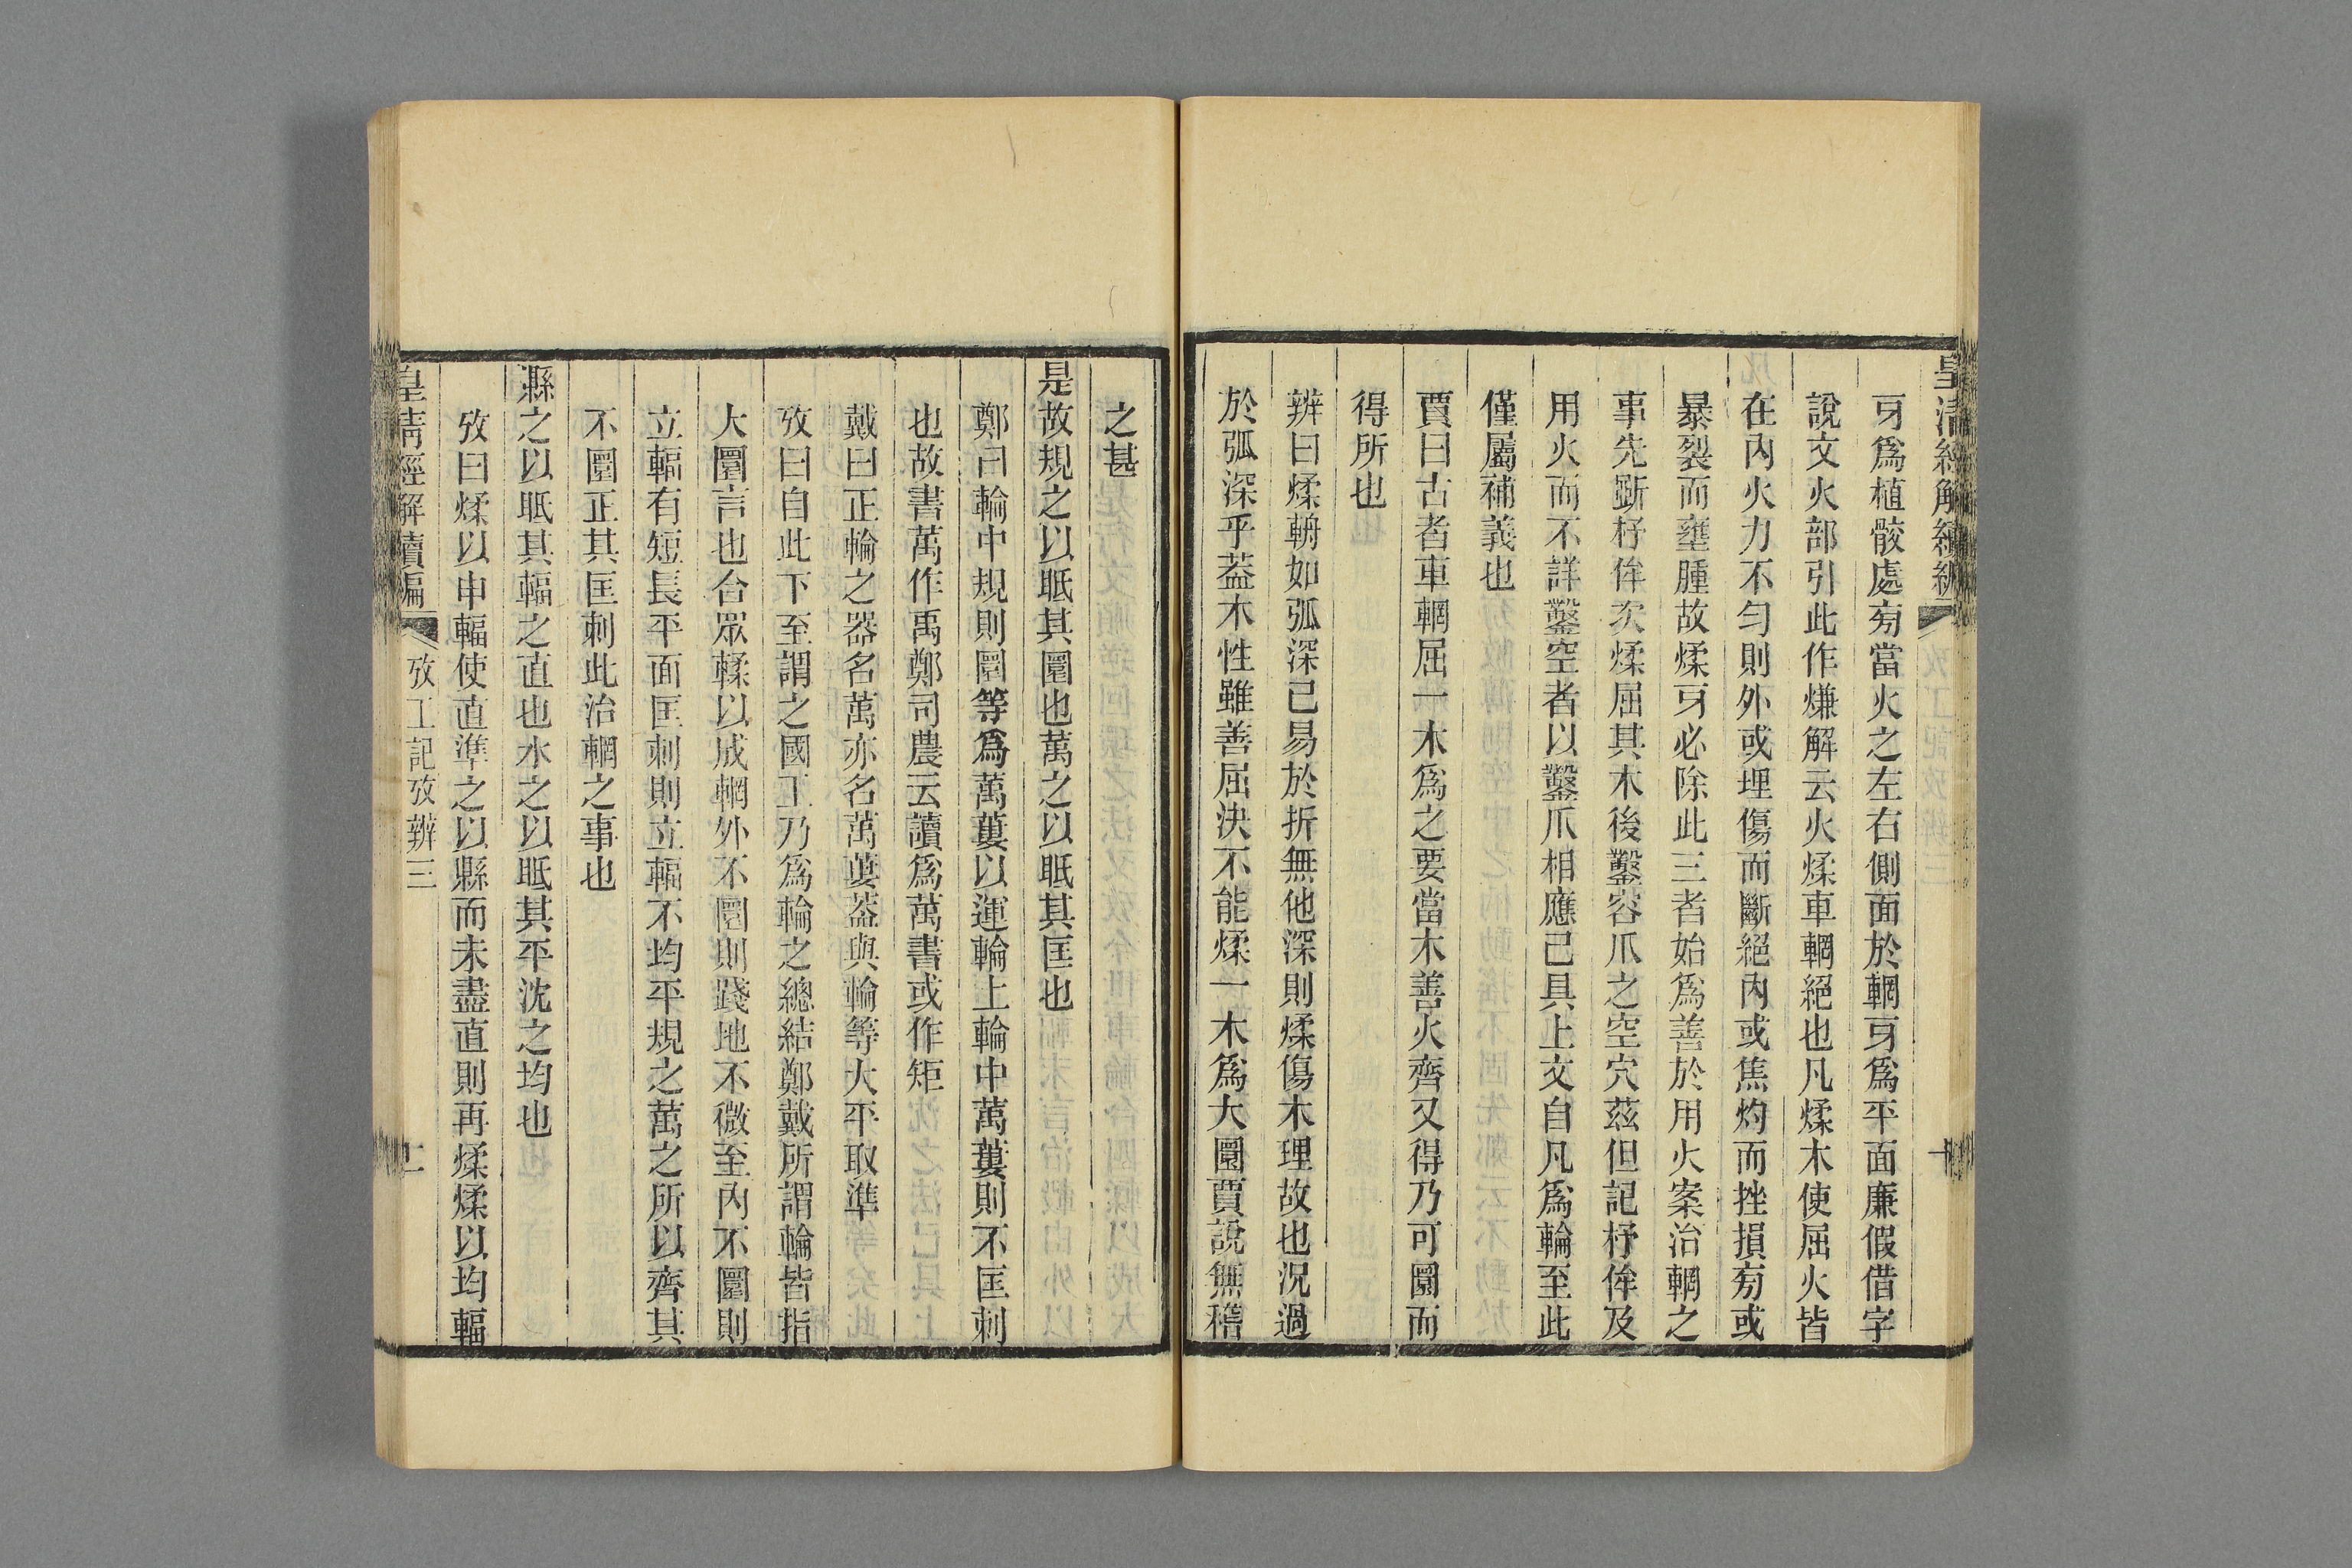 皇清經解續編
牙爲植骹處㫄當火之左右側面於輞牙爲平面廉假借字
說文火部引此作熑解云火煣車輞絕也凡煣木使屈火皆
在內火力不匀則外或埋傷而斷絕內或焦灼而挫損㫄或
暴裂而壅腫故煣牙必除此三者始爲善於用火案治輞之
事先斲杼侔次煣屈其木後鑿容爪之空穴茲但記杼侔及
用火而不詳鑿空者以鑿爪相應已具上文自凡爲輪至此
僅屬補義也
賈曰古者車輞屈一木爲之要當木善火齊又得乃可圜而
得所也
辨曰煣輈如弧深已易於折無他深則煣傷木理故也況過
於弧深乎葢木性雖善屈決不能煣一木爲大圜賈說無稽
之甚
是故規之以眡其圜也萬之以眡其匡也
鄭曰輪中規則圜等爲萬蔞以運輪上輪中萬蔞則不匡刺
也故書萬作禹鄭司農云讀爲萬書或作矩
戴曰正輪之器名萬亦名萬蔞葢與輪等大平取準
攷曰自此下至謂之國工乃爲輪之總結鄭戴所謂輪皆指
大圜言也合眾輮以成輞外不圜則踐地不微至內不圜則
立輻有短長平面匡刺則立輻不均平規之萬之所以齊其
不圜正其匡刺此治輞之事也
縣之以眡其輻之直也水之以眡其平沈之均也
攷曰煣以申輻使直準之以縣而未盡直則再煣煣以均輻
皇清經解續編
攷工記攷辨三